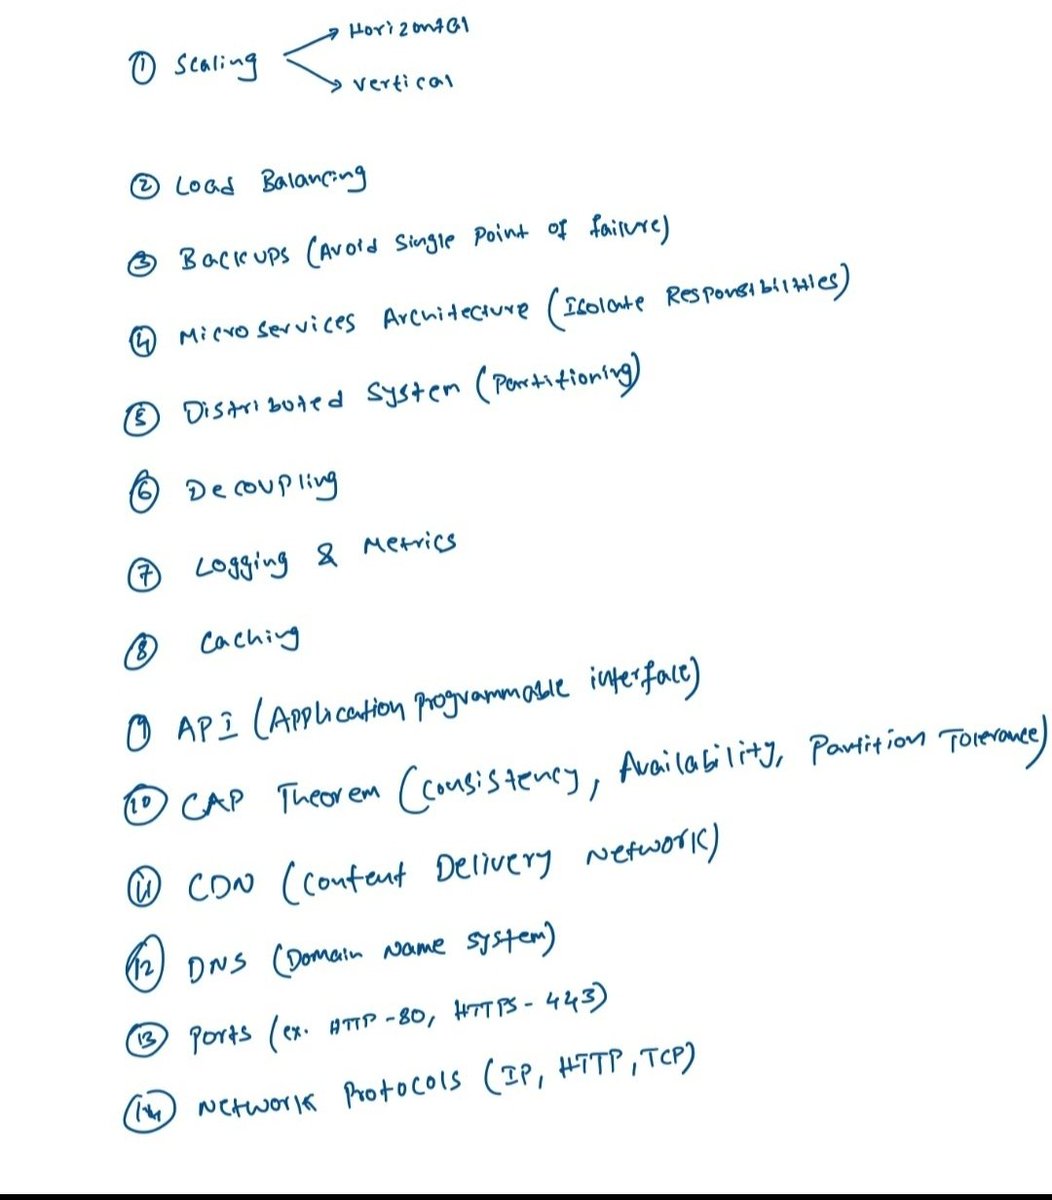 ① Scaling → Horizontal
→ Vertical
② Load Balancing
③ Backups (Avoid Single Point of failure)
④ Microservices Architecture (Isolate Responsibilities)
⑤ Distributed System (Partitioning)
⑥ Decoupling
⑦ Logging & Metrics
⑧ Caching
⑨ API (Application programmable interface)
⑩ CAP Theorem (Consistency, Availability, Partition Tolerance)
⑪ CDN (Content Delivery Network)
⑫ DNS (Domain Name System)
⑬ Ports (ex. HTTP-80, HTTPS-443)
⑭ Network Protocols (IP, HTTP, TCP)